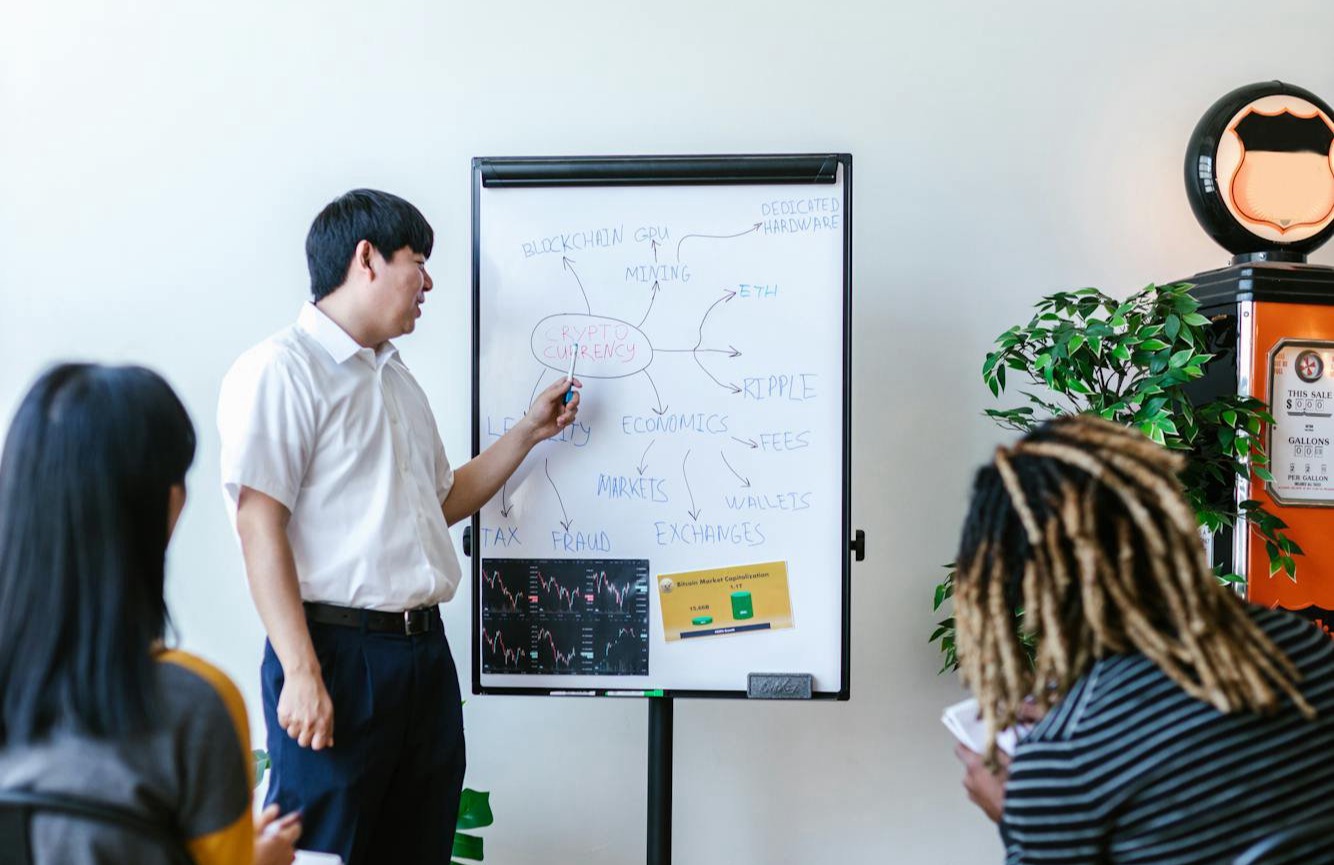 DEDICATED
HARDWARE
BLOCKCHAIN GPU
MINING
ETH
CRYPTO
CURRENCY
RIPPLE
ECONOMICS
FEES
MARKETS
WALLETS
TAX
FRAUD
EXCHANGES
Bitcoin Market Capitalization
1.1T
15,66B
THIS SALE
$ 000
GALLONS
PER GALLON